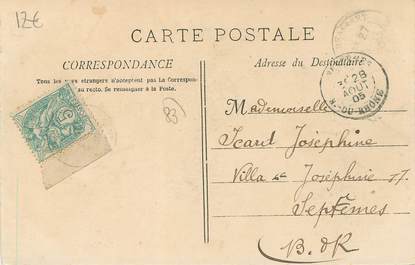 12€
CARTE POSTALE
CORRESPONDANCE
Tous les pays étrangers n'acceptent pas la Correspon-
dance au recto. Se renseigner à la Poste.
83
Adresse du Destinataire
28
AOUT
05
Mademoiselle
Icard Joséphine
Villa St Joséphine
Septèmes
B. d R